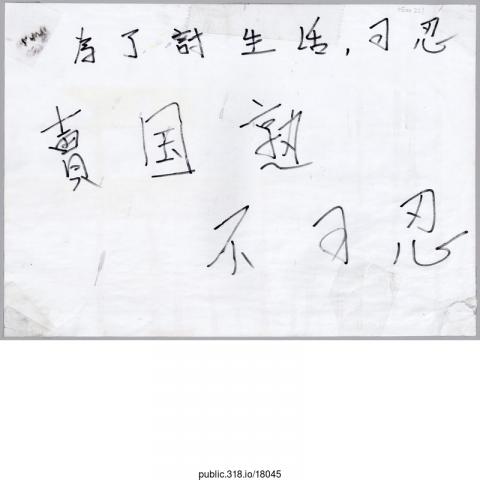 為了討生活,可忍
賣国熟
不可忍
public.318.io/18045